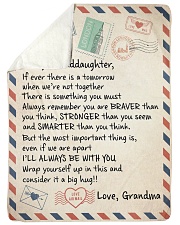 ddaughter,
If ever there is a tomorrow
when we're not together
There is something you must
Always remember you are BRAVER than
you think, STRONGER than you seem
and SMARTER than you think.
But the most important thing is,
even if we are apart
I'LL ALWAYS BE WITH YOU
Wrap yourself up in this and
consider it a big hug!!
Love, Grandma